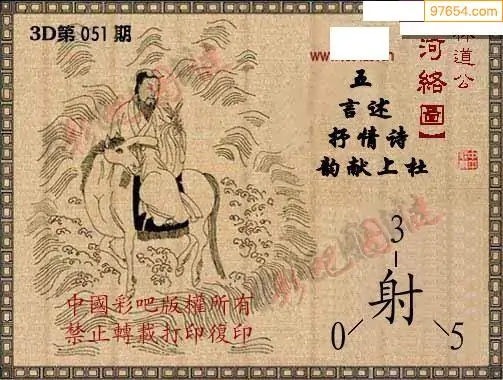 97654.com
3D第 051 期
www.
道公
河絡圖】
五
言述
抒情诗
韵献上杜
彩吧圖迷
3
射
0
5
中國彩吧版權所有
禁止轉載打印復印